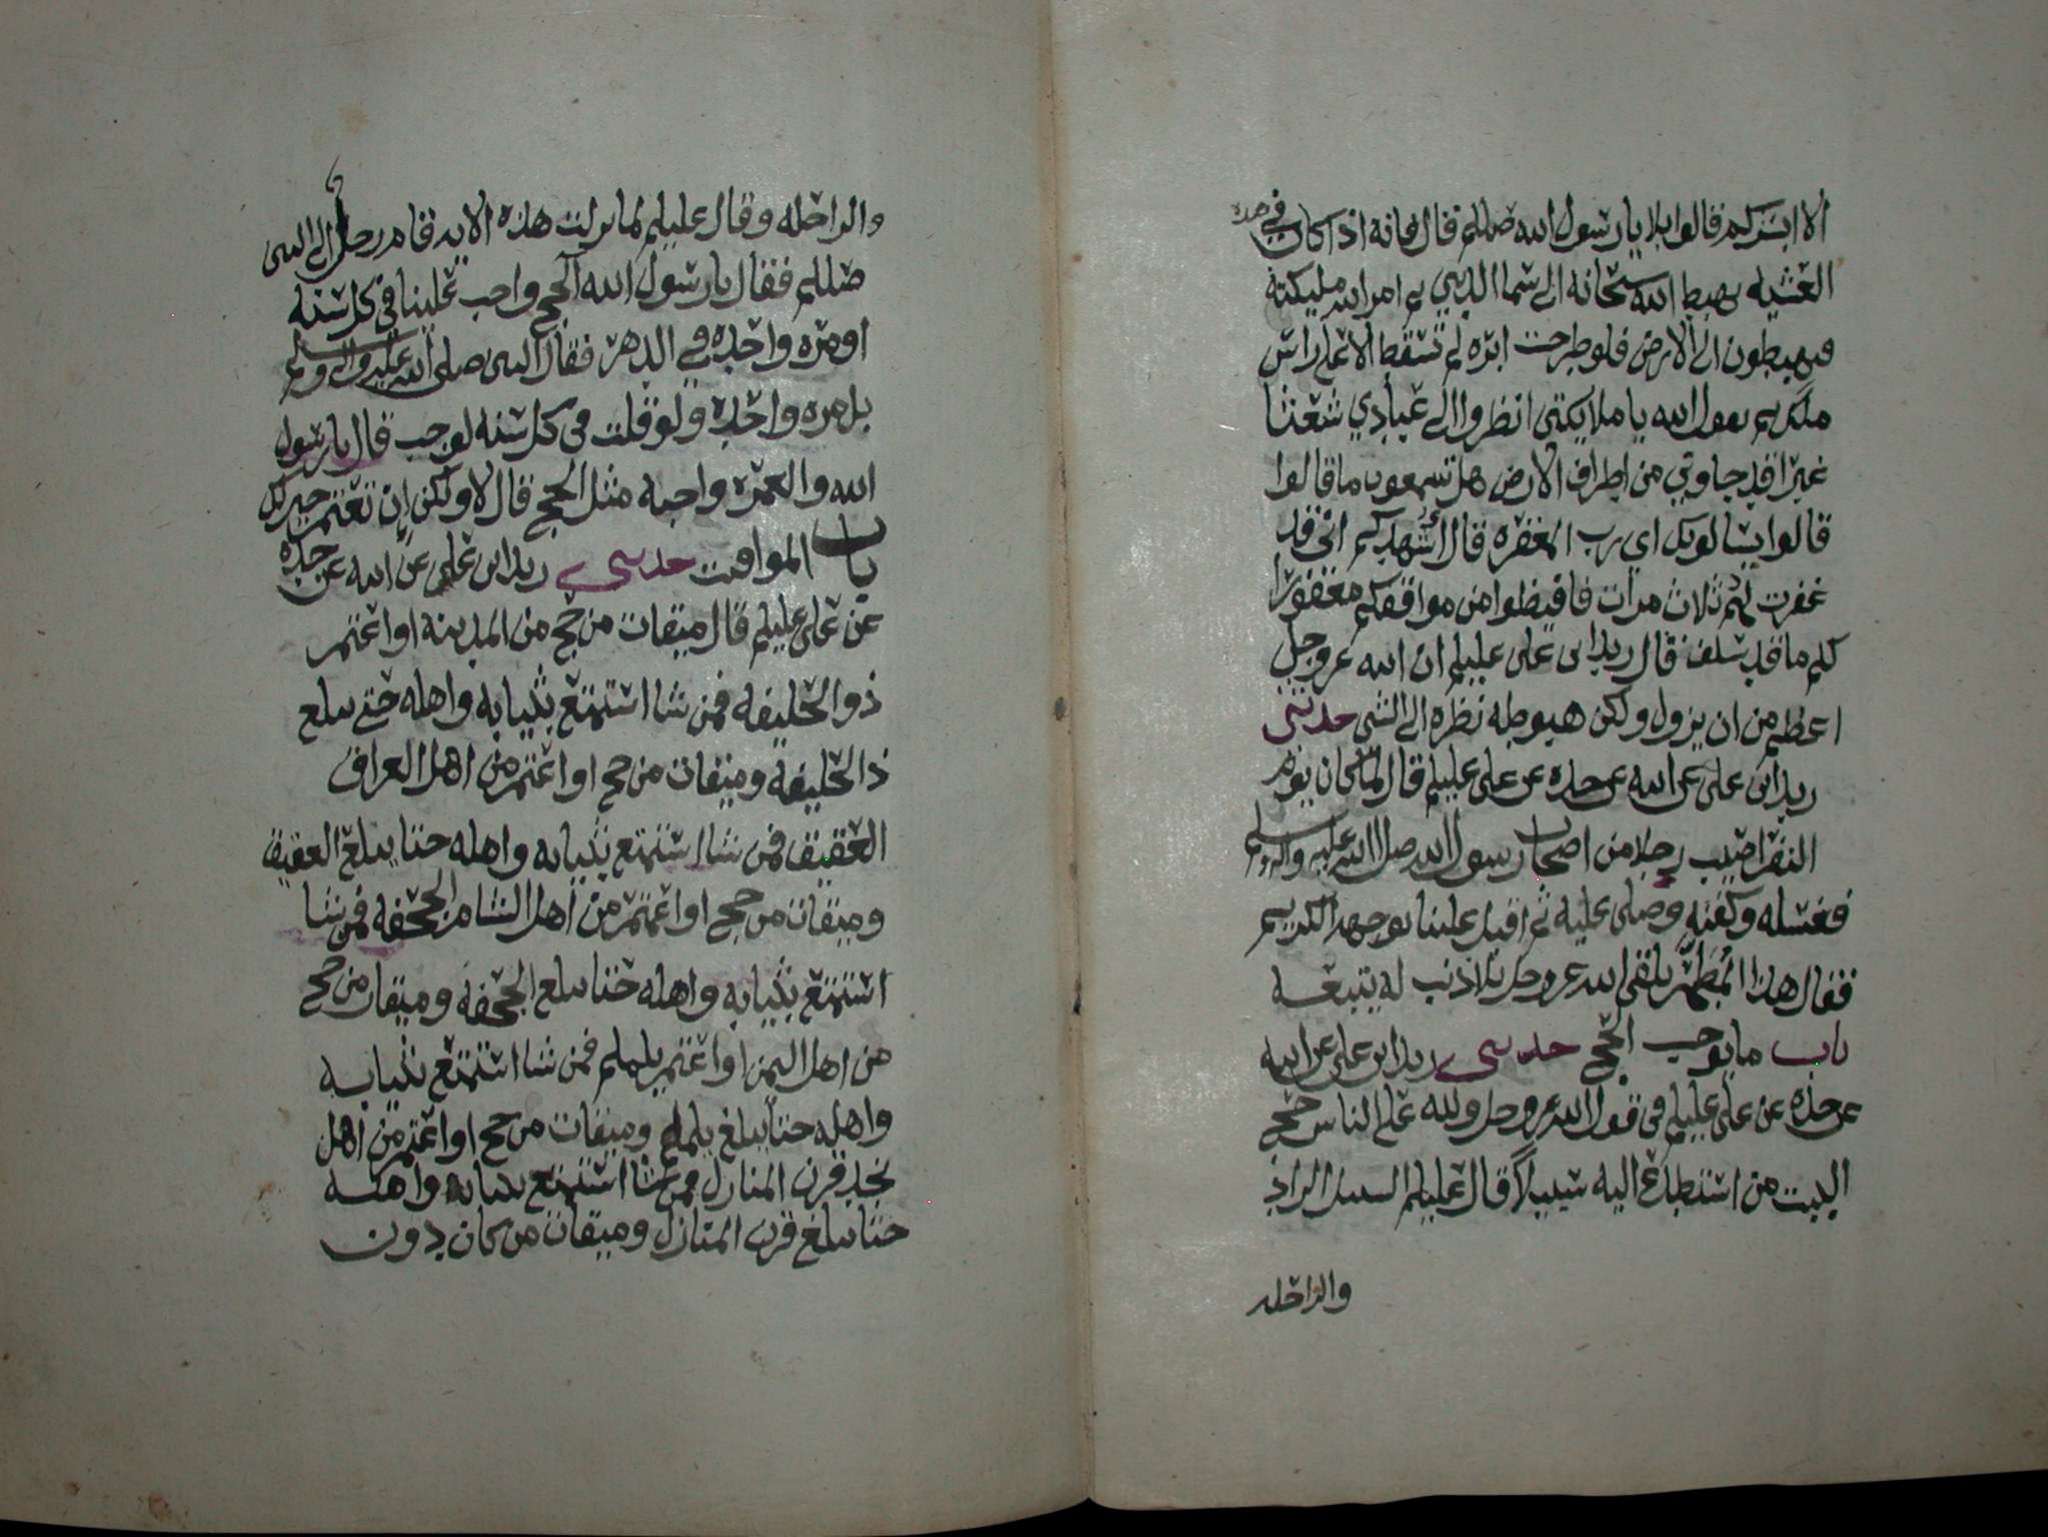 الا ابشركم قالوا بلا يا رسول الله صللم قال فانه اذا كان في هذه
العشيه يهبط الله سبحانه الى سما الدنيي ثم امر الله مليكته
فيهبطون الى الارض فلو طرحت ابره لم تسقط الا على راس
ملك ثم يقول الله يا ملايكتى انظروا الى عبادي شعثا
غبرا قد جاوني من اطراف الارض هل تسمعون ما قالوا
قالوا يسالونك اي رب المغفره قال اشهدكم اني قد
غفرت لهم ثلاث مرات فافيظوا من مواقفكم مغفورا
لكم ما قد سلف قال زيد ابن على عليلم ان الله عز وجل
اعظم من ان يزول ولكن هبوطه نظره الى الشى حدثني
زيد ابن على عن ابيه عن جده عن على عليلم قال لما كان يوم
النفر اصيب رجلا من اصحاب رسول الله صلى الله عليه واله وسلم
فغسله وكفنه وصلى عليه ثم اقبل علينا بوجهه الكريم
فقال هذا المطهر يلقى الله عز وجل بلا ذنب له يتبعه
باب ما يوجب الحج حدثني زيد ابن على عن ابيه
عن جده عن على عليلم في قول الله عز وجل ولله على الناس حج
البيت من استطاع اليه سبيلاً قال عليلم السبيل الزاد
والراحله
والراحله وقال عليلم لما نزلت هذه الايه قام رجل الى النبي
صللم فقال يا رسول الله الحج واجب علينا في كل سنه
او مره واحده في الدهر فقال النبي صلى الله عليه واله وسلم
بل مره واحده ولو قلت في كل سنه لوجب قال يا رسول
الله والعمره واجبه مثل الحج قال لا ولكن ان تعتمر خير لك
باب المواقيت حدثني زيد ابن على عن ابيه عن جده
عن على عليلم قال ميقات من حج من المدينه او اعتمر
ذو الحليفه فمن شا استمتع بثيابه واهله حتى يبلغ
ذا الحليفه وميقات من حج او اعتمر من اهل العراق
العقيق فمن شا استمتع بثيابه واهله حتا يبلغ العقيق
وميقات من حج او اعتمر من اهل الشام الجحفه فمن شا
استمتع بثيابه واهله حتا يبلغ الجحفه وميقات من حج
من اهل اليمن او اعتمر يلملم فمن شا استمتع بثيابه
واهله حتا يبلغ يلملم وميقات من حج او اعتمر من اهل
نجد قرن المنازل فمن شا استمتع بثيابه واهله
حتا يبلغ قرن المنازل وميقات من كان دون